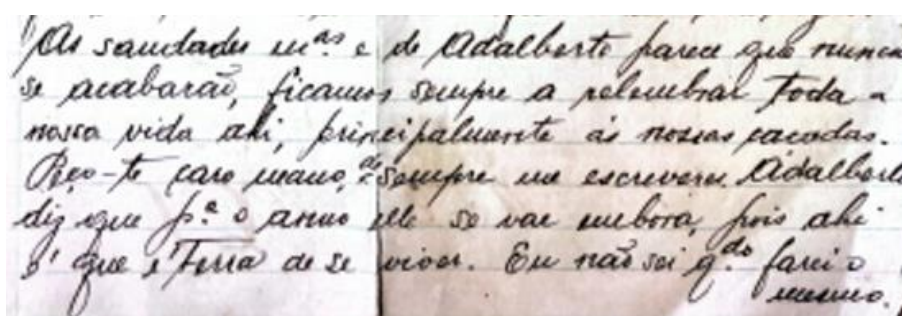 As saudades m.as e de Adalberto parece que nunca
se acabarão, ficamos sempre a relembrar toda a
nossa vida ahi, principalmente ás nossas caçadas.
Peço-te caro mano, de sempre me escreveres. Adalberto
diz que p.a o anno elle se vae embora, pois ahi
é que é Terra de se viver. Eu não sei q.do farei o
mesmo.